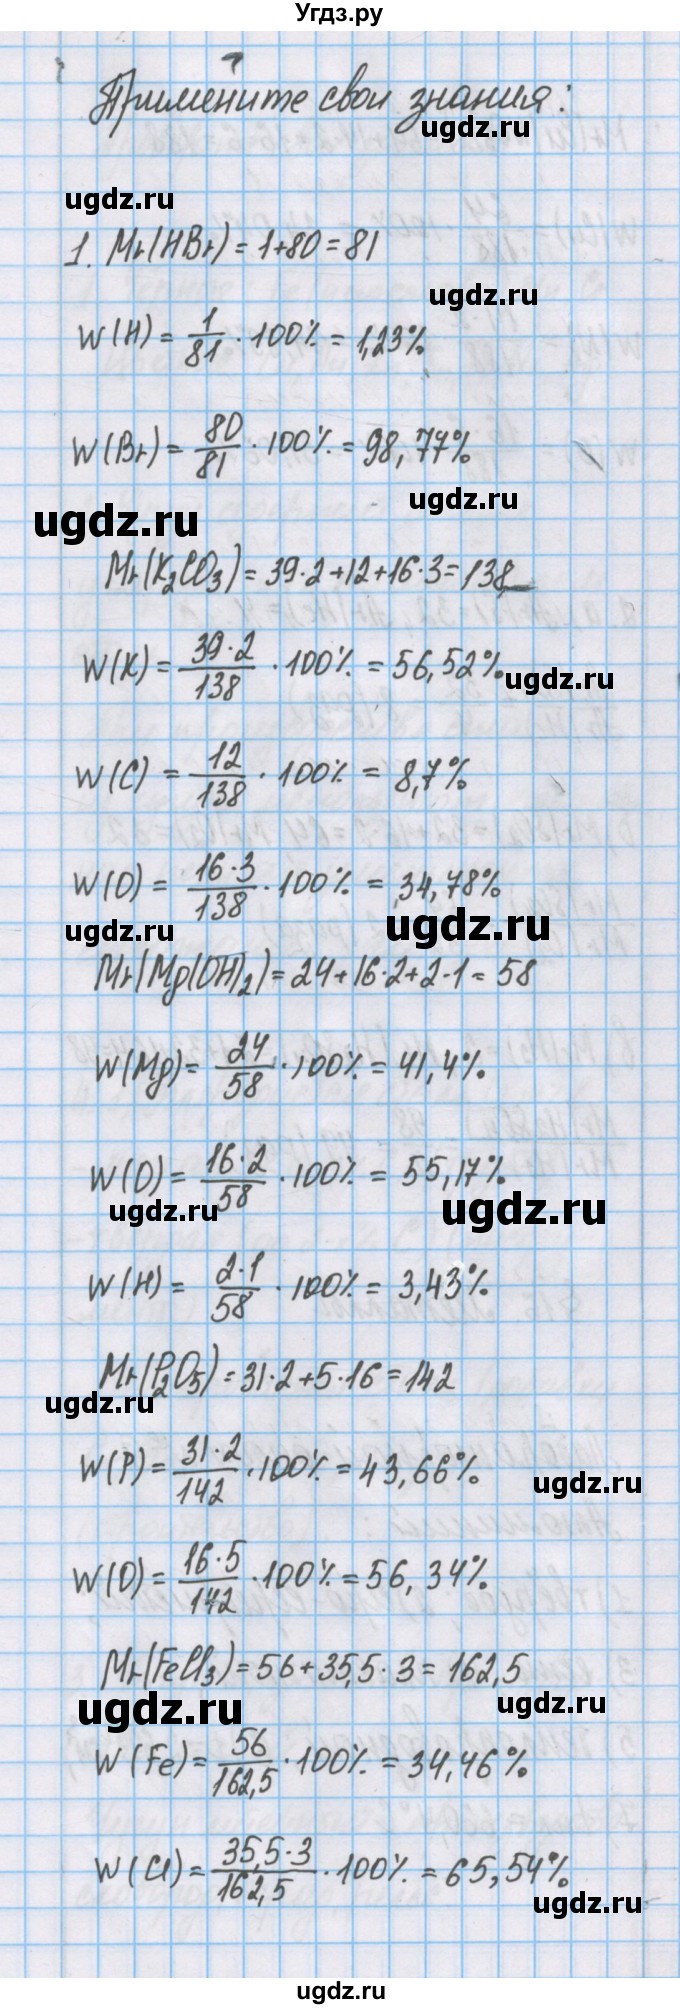 Угдз.ру
Примените свои знания:
ugdz.ru
ugdz.ru
1. Mr(HBr) = 1+80 = 81
ugdz.ru
W(H) = 1/81 · 100% = 1,23%
W(Br) = 80/81 · 100% = 98,77%
ugdz.ru
ugdz.ru
Mr(K₂CO₃) = 39·2+12+16·3 = 138
W(K) = 39·2/138 · 100% = 56,52%
ugdz.ru
W(C) = 12/138 · 100% = 8,7%
W(O) = 16·3/138 · 100% = 34,78%
ugdz.ru
ugdz.ru
Mr(Mg(OH)₂) = 24+16·2+2·1 = 58
W(Mg) = 24/58 · 100% = 41,4%
W(O) = 16·2/58 · 100% = 55,17%
ugdz.ru
ugdz.ru
W(H) = 2·1/58 · 100% = 3,43%
Mr(P₂O₅) = 31·2+5·16 = 142
ugdz.ru
W(P) = 31·2/142 · 100% = 43,66%
ugdz.ru
W(O) = 16·5/142 · 100% = 56,34%
Mr(FeCl₃) = 56+35,5·3 = 162,5
ugdz.ru
ugdz.ru
W(Fe) = 56/162,5 · 100% = 34,46%
W(Cl) = 35,5·3/162,5 · 100% = 65,54%
ugdz.ru
ugdz.ru